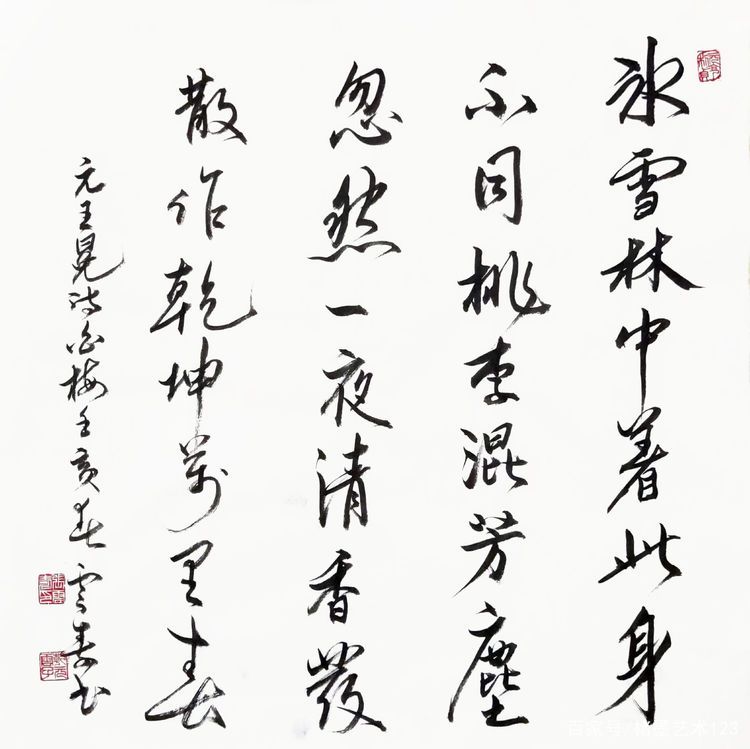 冰雪林中着此身
不同桃李混芳塵
忽然一夜清香發
散作乾坤萬里春
元王冕诗白梅亥春雲寿书
百家号/墨艺术123